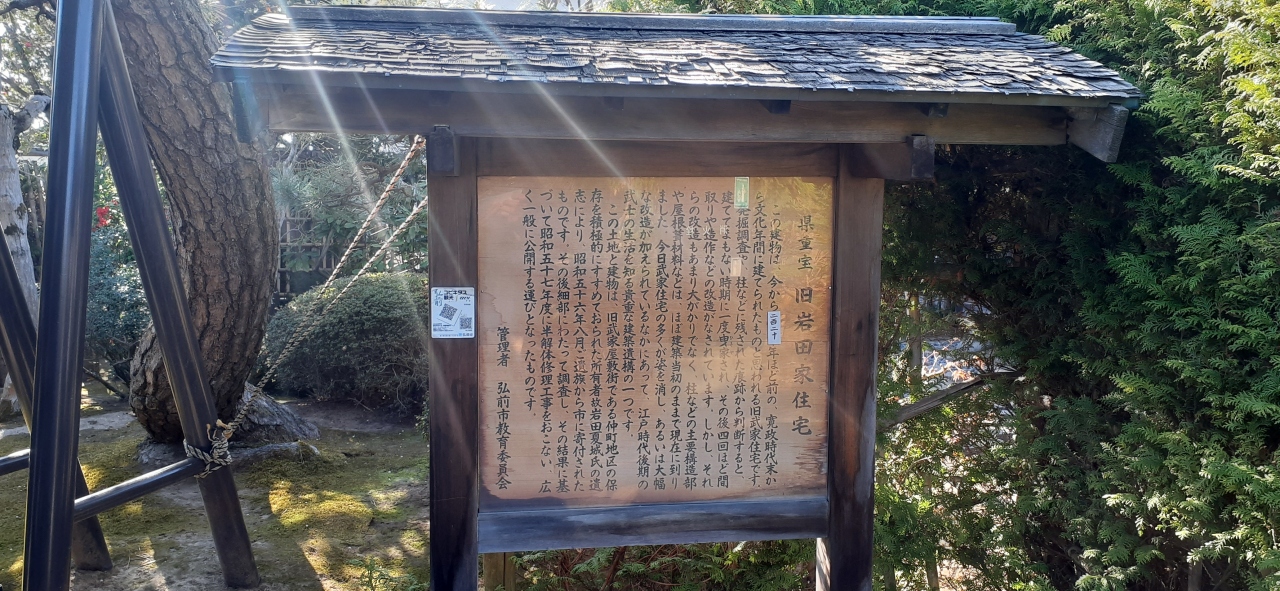 県重宝 旧岩田家住宅
この建物は、今から二百二十年ほど前の、寛政時代末か
ら文化年間に建てられたものと思われる旧武家住宅です。
発掘調査や、柱などに残された痕跡から判断すると、
建てて間もない時期に一度卑家され、その後四回ほど間
取りや造作などの改造がなされています。しかし、それ
らの改造もあまり大がかりでなく、柱などの主要構造部
や屋根等材料などは、ほぼ建築当初のままで現在に到り
ました。今日武家住宅の多くが姿を消し、あるいは大幅
な改造が加えられているなかにあって、江戸時代後期の
武士の生活を知る貴重な建築遺構の一つです。
この土地と建物は、旧武家屋敷街である仲町地区の保
存を積極的にすすめておられた所有者故岩田夏城氏の遺
志により、昭和五十六年八月ご遺族から市に寄付された
ものです。その後細部にわたって調査し、その結果に基
づいて昭和五十七年度に半解体修理工事をおこない、広
く一般に公開する運びとなったものです。
管理者 弘前市教育委員会